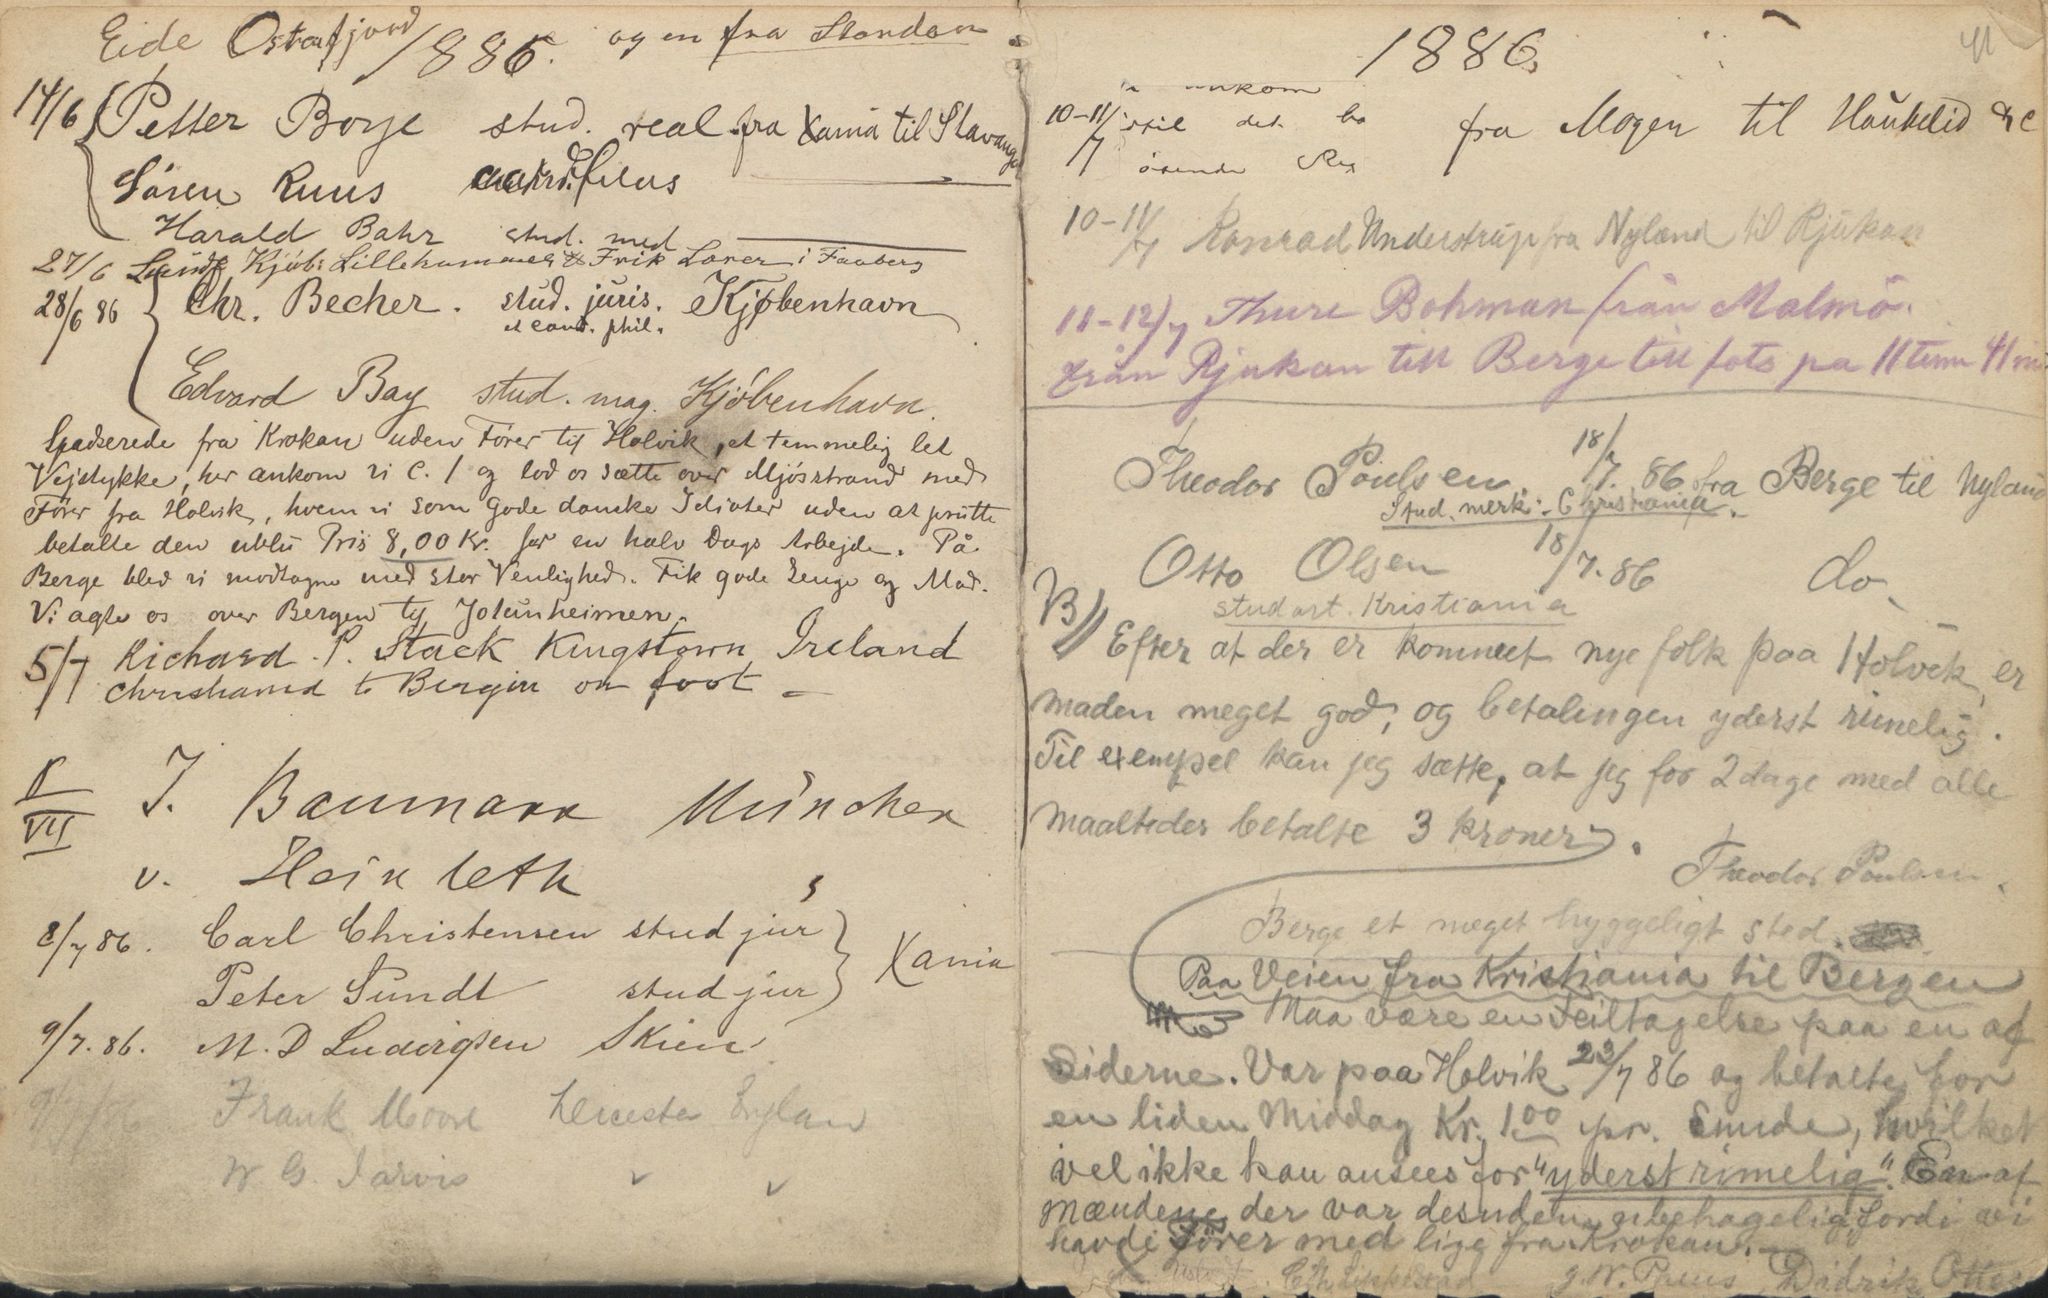 Eide Ostenfjord 1886. og en fra
14/6 Petter Borge stud. real fra Xania til Stavanger
Sören Ruus
Harald Bahr stud. med
27/6 Kjøb: Lillehammer & i Faaberg
28/6 86 Chr. Becher. stud. juris. Kjøbenhavn
et cand. phil.
Edvard Bay stud. mag. Kjøbenhavn.
Spadserede fra Krokan uden Fører til Holvik, et temmelig let
Vejstykke, her ankom vi c. 1 og lod os sætte over Mjösstrand med
Fører fra Holvik, hvem vi som gode danske Idioter uden at prutte
betalte den ublu Pris 8,00 Kr. for en halv Dags Arbejde. På
Berge blev vi modtagne med stor Venlighed. Fik gode Senge og Mad.
Vi agte os over Bergen til Jotunheimen.
5/7 Richard. P. Stack Kingstown Ireland
Christiania to Bergen on foot –
8/VII J. Baumann München
v. Heinleth "
8/7 86. Carl Christensen stud jur
Peter Sundt stud jur } Xania
9/7. 86. M. D Ludvigsen Skien
9/7/86 Frank Moore Leicester England
W G. Jarvis " "
1886.
11
ankom
10-11/7 til det fra Mogen til Haukelid &c
10-11/7 Konrad Understrup fra Nyland til Rjukan
11-12/7 Thure Bohman från Malmö.
från Rjukan till Berge till fots på 11 tim 41 min
Theodor Poulsen. 18/7. 86 fra Berge til Nyland
Stud. merk. Christiania.
Otto Olsen 18/7. 86 do.
stud art. Kristiania
NB) Efter at der er kommet nye folk paa Holvik, er
maden meget god, og betalingen yderst rimelig.
Til exempel kan jeg sætte, at jeg for 2 dage med alle
maaltider betalte 3 kroner.
Theodor Poulsen.
Berge et meget hyggeligt sted.
Paa Veien fra Kristiania til Bergen
Maa være en Feiltagelse paa en af
Siderne. Var paa Holvik 23/7 86 og betalte for
en liden Middag Kr. 1.00 pr. Snude, hvilket
vel ikke kan ansees for "yderst rimelig". En af
mændene der var desuden ubehagelig, fordi vi
havde Fører med lige fra Krokan.
Didrik